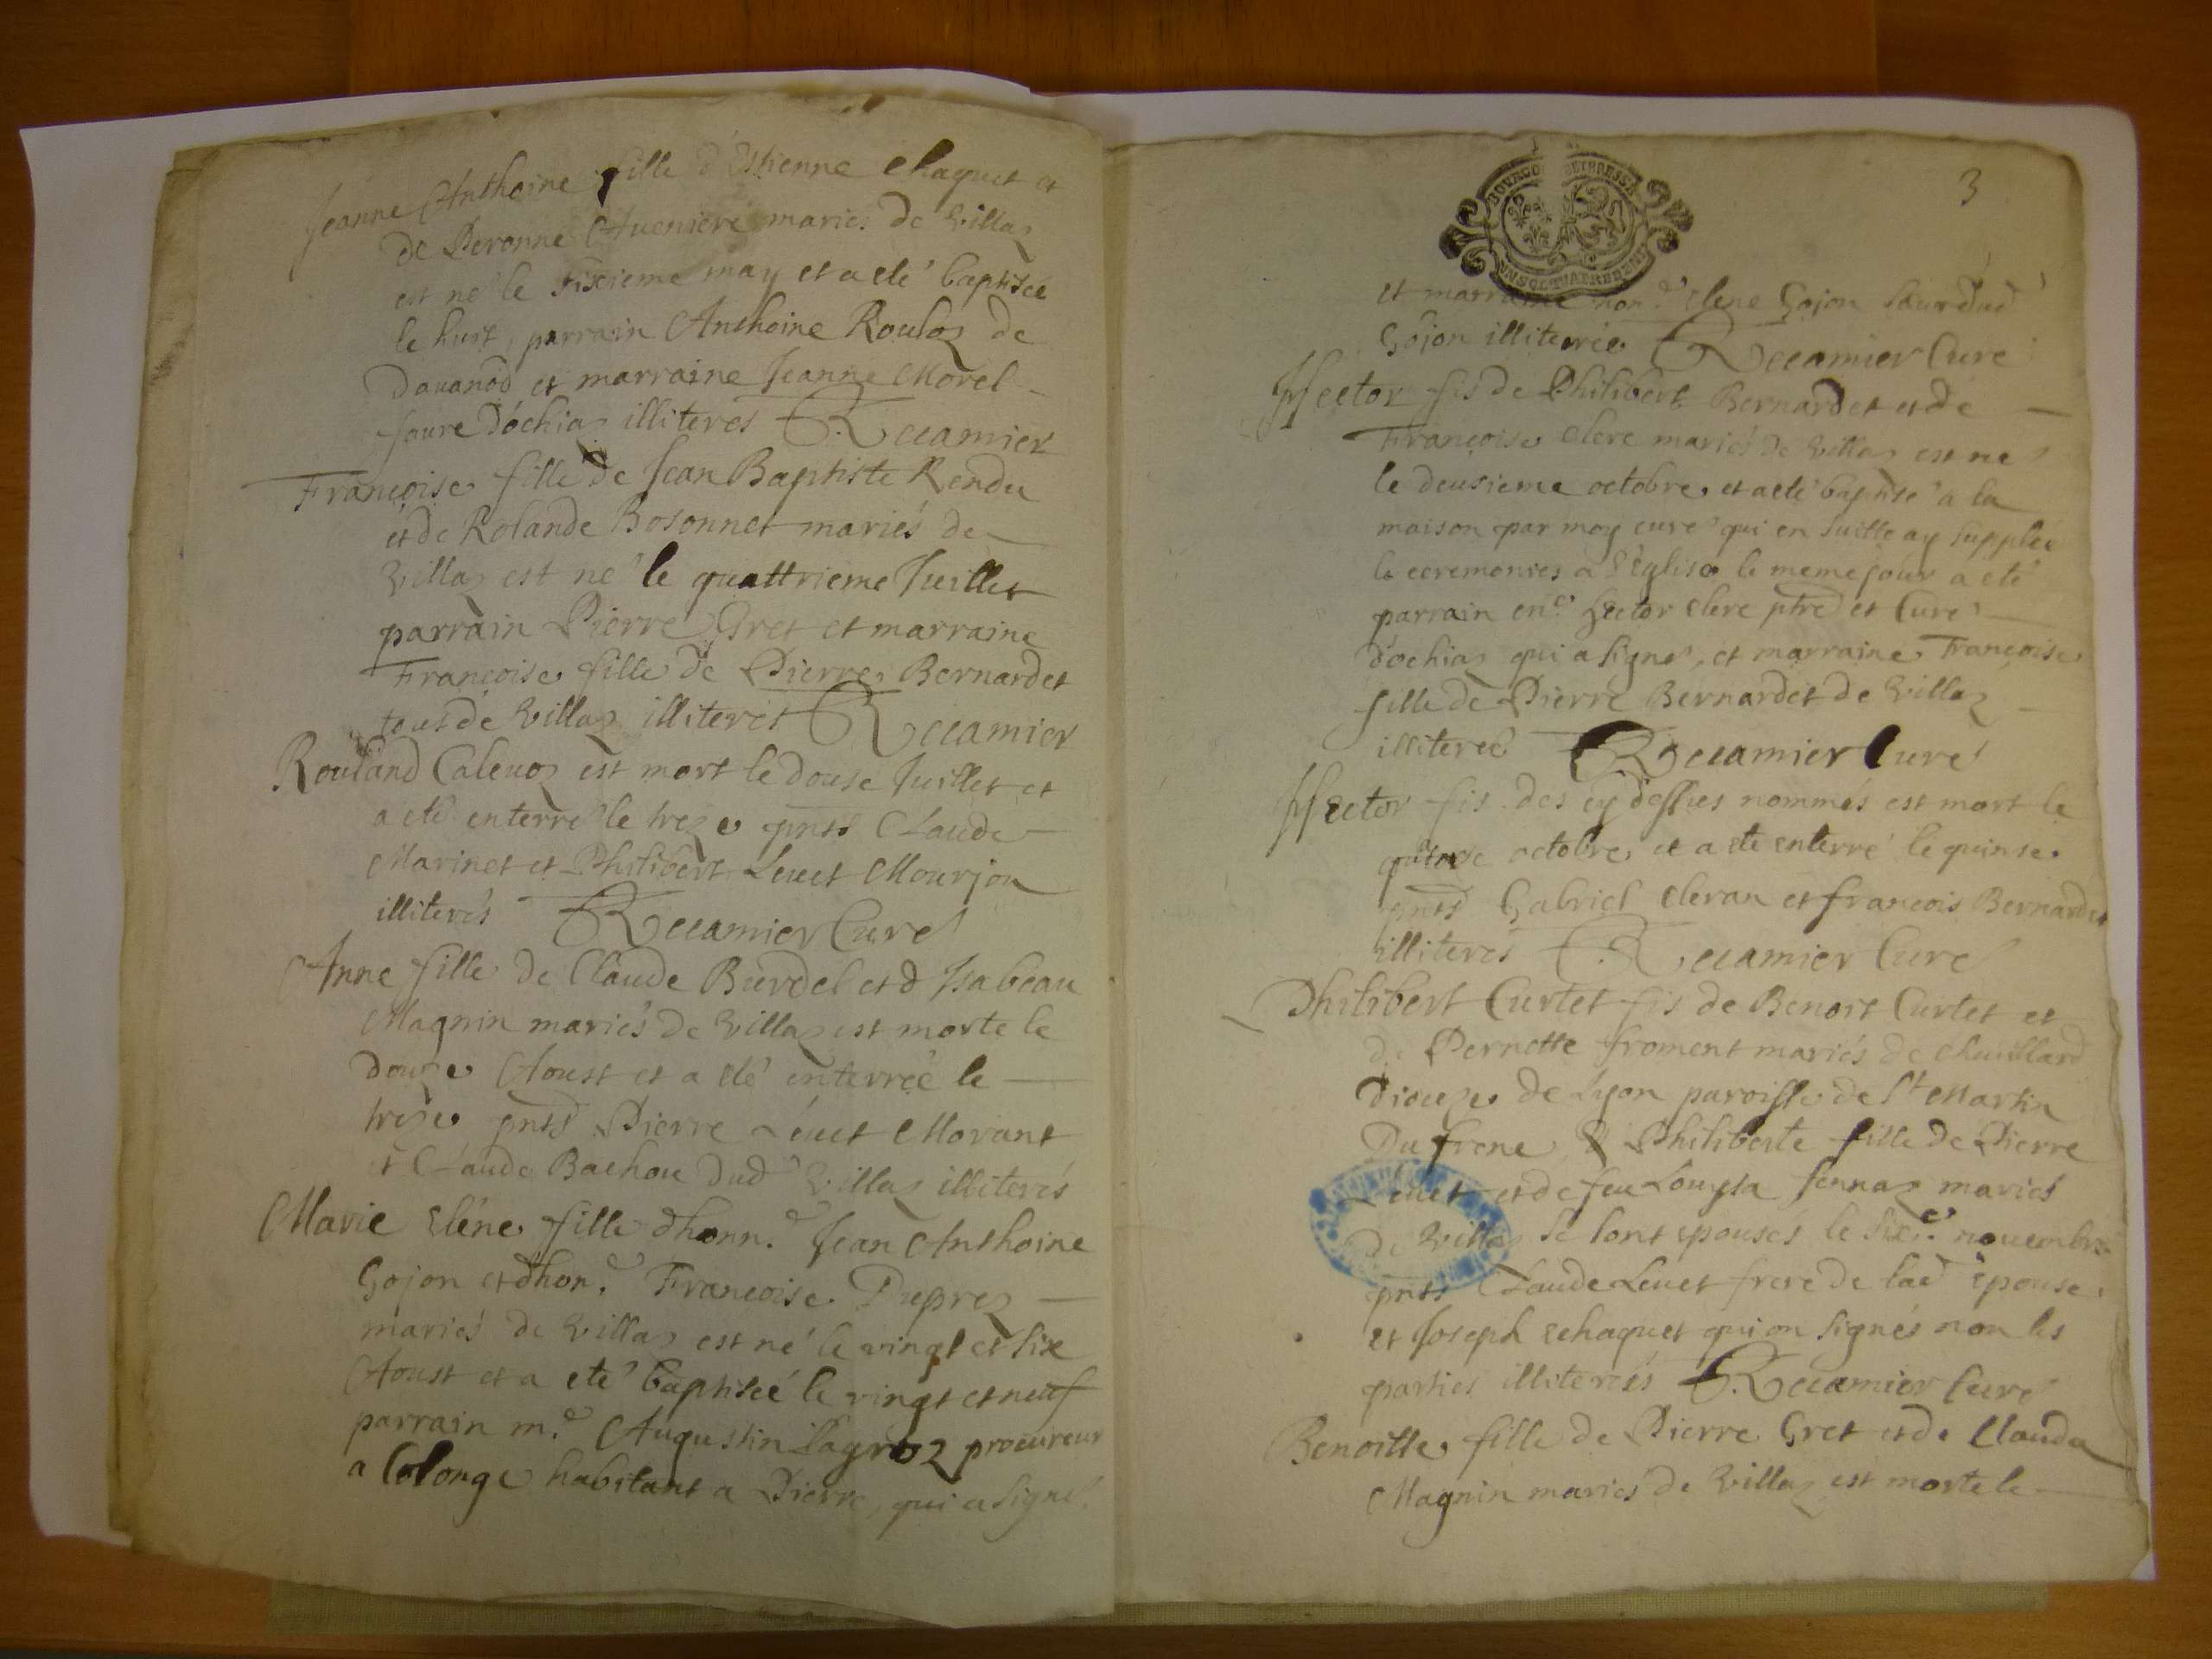 Jeanne Anthoine fille d'Estienne Chaquet et
de Peronne Aueniere mariés de Villaz
est né le sixieme may et a eté baptisée
le huit, parrain Anthoine Rouloz de
dauanod et marraine Jeanne Morel
dóchiaz illiteres Reccamier
Françoise fille de Jean Baptiste Rendu
et de Rolande Bosonnet mariés de
Villaz est né le quattrieme Juillet
parrain Pierre Gret et marraine
Françoise fille de Pierre Bernardet
tous de Villaz illiterés Reccamier
Rouland Caleuoz est mort le douse Juillet et
a eté enterré le treze pnts Claude
Marinet et Philibert Leuet Mourjon
illiterés Reccamier Curé
Anne fille de Claude Burdel et d Isabeau
Magnin mariés de Villaz est morte le
douze Aoust et a eté enterrée le
treze pnts Pierre Leuet Morant
et Claude Bachou dud Villaz illiterés
Marie Elene fille dhonn.e Jean Anthoine
Gojon et dhon.e Francoise Duprez
mariés de Villaz est né le vingt et six
Aoust et a eté baptiseé le vingt et neuf
parrain m.e Augustin Lagroz procureur
a Colonge habitant a Pierre, qui a signé
3
BOURGO ET BRESSE
et marraine hon.e Elene Gojon sœur dud
Gojon illiterée Reccamier Curé
Hector fis de Philibert Bernardet et de
Françoise Clerc mariés de Villaz est né
le deusieme octobre et a eté baptisé a la
maison par moy curé qui en suitte ay supplée
le ceremonies a l'Eglise le meme jour a eté
parrain Hector Clerc ptre et Curé
d'ochiaz qui a signé, et marraine Françoise
fille de Pierre Bernardet de Villaz
illiterée Reccamier Curé
Hector fis des cy dessues nommés est mort le
octobre et a eté enterré le quinse
pnts Gabriel Cleran et francois Bernardet
illiterés Reccamier Curé
Philibert Curtet fis de Benoit Curtet et
de Pernette froment mariés de Chuillard
Dioceze de Lyon paroisse de St Martin
Du frene & Philiberte fille de Pierre
Leuet et de feu Louysa Jennaz mariés
de Villaz se sont epousés le six.e nouembre
pnts Claude Leuet frere de lad epouse
et Joseph Echaquet qui on signés non les
parties illiterées Reccamier Curé
Benoitte fille de Pierre Gret et de Clauda
Magnin mariés de Villaz est morte le